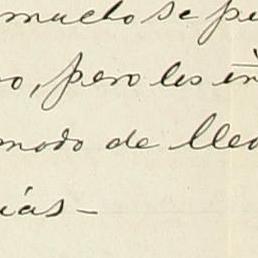 mucho se pu
o, pero les in
modo de lle
ias-